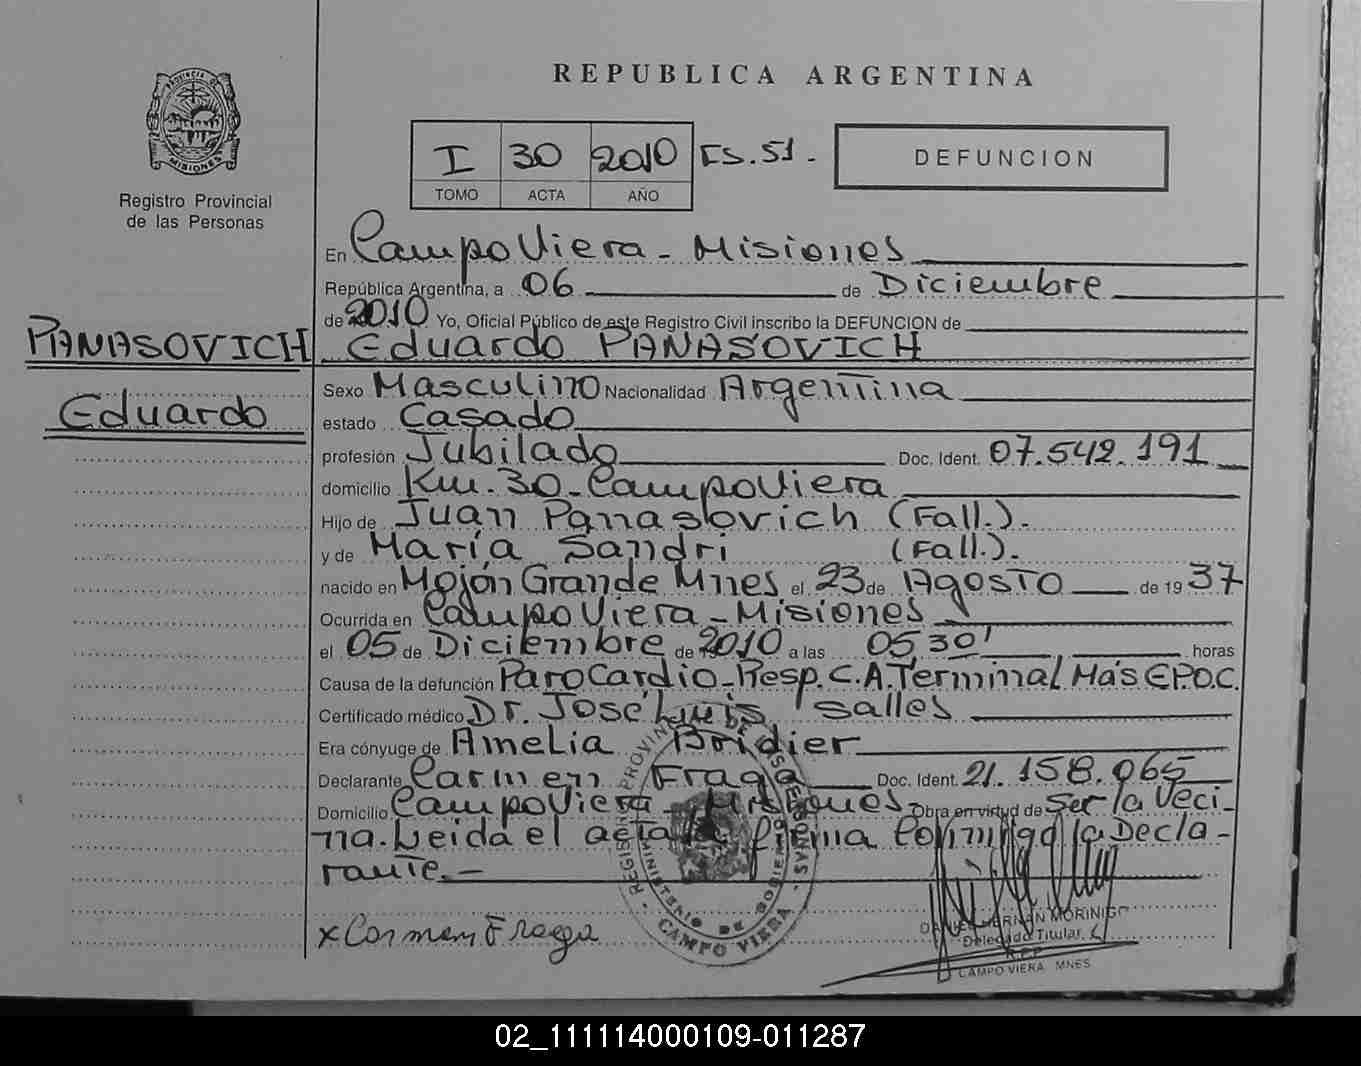 REPUBLICA ARGENTINA
PROVINCIA D
MISIONES
Registro Provincial
de las Personas
I 30 2010 FS.51.
TOMO ACTA AÑO
DEFUNCION
En Campo Viera - Misiones
República Argentina, a 06 de Diciembre
de 2010 Yo, Oficial Público de este Registro Civil inscribo la DEFUNCION de
PANASOVICH Eduardo PANASOVICH
Eduardo
Sexo Masculino Nacionalidad Argentina
estado Casado
profesión Jubilado Doc. Ident. 07.542.191
domicilio Km.30-Campo Viera
Hijo de Juan Panasovich (Fall.).
y de María Sandri (Fall.).
nacido en Mojón Grande Mnes el 23 de Agosto de 1937
Ocurrida en Campo Viera - Misiones
el 05 de Diciembre de 2010 a las 05 30' horas
Causa de la defunción Paro Cardio-Resp. C.A. Terminal Más E.P.O.C.
Certificado médico Dr. José Luis Salles
Era cónyuge de Amelia Bridier
Declarante Carmen Fraga Doc. Ident. 21.158.065
Domicilio Campo Viera - Misiones. Obra en virtud de ser la Veci-
na. Leida el acta la firma Conmigo la Decla-
rante.-
x Carmen Fraga
REGISTRO PROVINCIAL DE LAS PERSONAS - CAMPO VIERA -
MINISTERIO DE GOBIERNO
DANIEL HERNAN MORINIGO
Delegado Titular
R.P.P.
CAMPO VIERA MNES
02_111114000109-011287